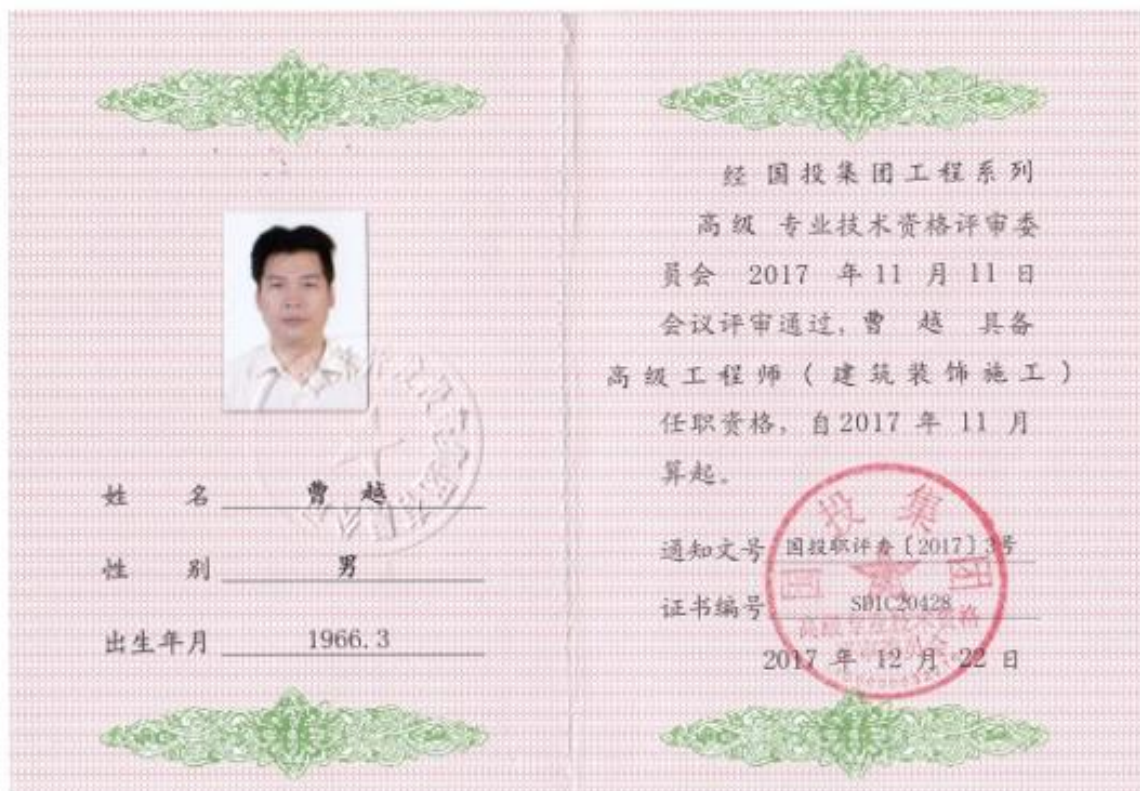 姓 名 曹 越
性 别 男
出生年月 1966.3
经 国投集团工程系列
高级 专业技术资格评审委
员会 2017 年 11 月 11 日
会议评审通过, 曹 越 具备
高级工程师(建筑装饰施工)
任职资格, 自2017 年 11 月
算起。
通知文号 国投职评办〔2017〕3号
证书编号 SDIC20428
2017 年 12 月 22 日
国投集团
高级专业技术资格